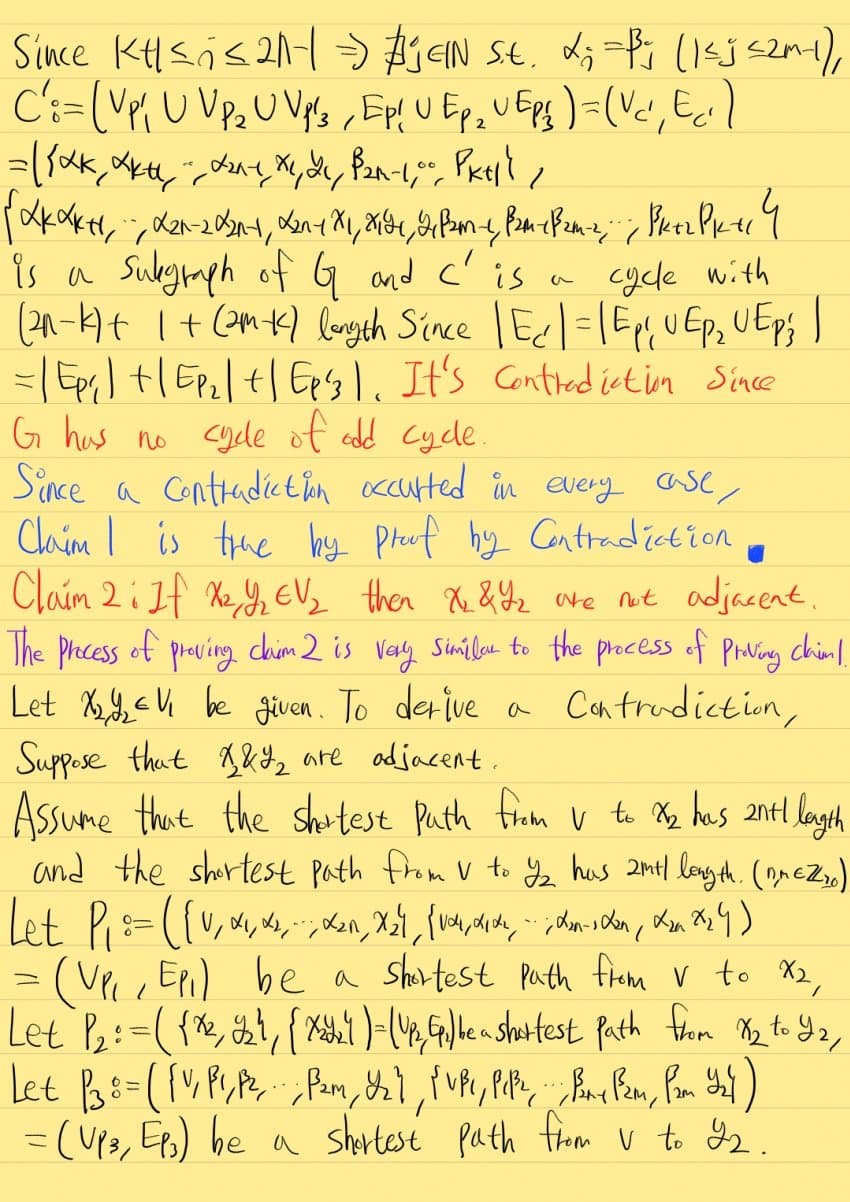 Since k+1 ≤ i ≤ 2n-1 ⇒ ∄j∈ℕ s.t. αᵢ = βⱼ (1≤j≤2m-1),
C' := (V_P₁' ∪ V_P₂ ∪ V_P₃', E_P₁' ∪ E_P₂ ∪ E_P₃') = (V_C', E_C')
= ({αₖ, αₖ₊₁, ⋯, α₂ₙ₋₁, x₁, y₁, β₂ₙ₋₁, ⋯, βₖ₊₁},
{αₖαₖ₊₁, ⋯, α₂ₙ₋₂α₂ₙ₋₁, α₂ₙ₋₁x₁, x₁y₁, y₁β₂ₘ₋₁, β₂ₘ₋₁β₂ₘ₋₂, ⋯, βₖ₊₂βₖ₊₁}
is a subgraph of G and C' is a cycle with
(2n-k)+ 1 + (2m-k) length Since |E_C'| = |E_P₁' ∪ E_P₂ ∪ E_P₃'|
= |E_P₁'| + |E_P₂| + |E_P₃'|. It's Contradiction Since
G has no cycle of odd cycle.
Since a Contradiction occurred in every case,
Claim 1 is true by proof by Contradiction.
Claim 2 : If x₂,y₂ ∈ V₂ then x₂ & y₂ are not adjacent.
The process of proving claim 2 is very similar to the process of proving claim 1.
Let x₂,y₂ ∈ V₁ be given. To derive a Contradiction,
Suppose that x₂ & y₂ are adjacent.
Assume that the shortest path from v to x₂ has 2n+1 length
and the shortest path from v to y₂ has 2m+1 length. (n,m ∈ ℤ≥0)
Let P₁ := ({v, α₁, α₂, ⋯, α₂ₙ, x₂}, {vα₁, α₁α₂, ⋯, α₂ₙ₋₁α₂ₙ, α₂ₙx₂})
= (V_P₁, E_P₁) be a shortest path from v to x₂,
Let P₂ := ({x₂, y₂}, {x₂y₂}) = (V_P₂, E_P₂) be a shortest path from x₂ to y₂,
Let P₃ := ({v, β₁, β₂, ⋯, β₂ₘ, y₂}, {vβ₁, β₁β₂, ⋯, β₂ₙ₋₁β₂ₘ, β₂ₘy₂})
= (V_P₃, E_P₃) be a shortest path from v to y₂.